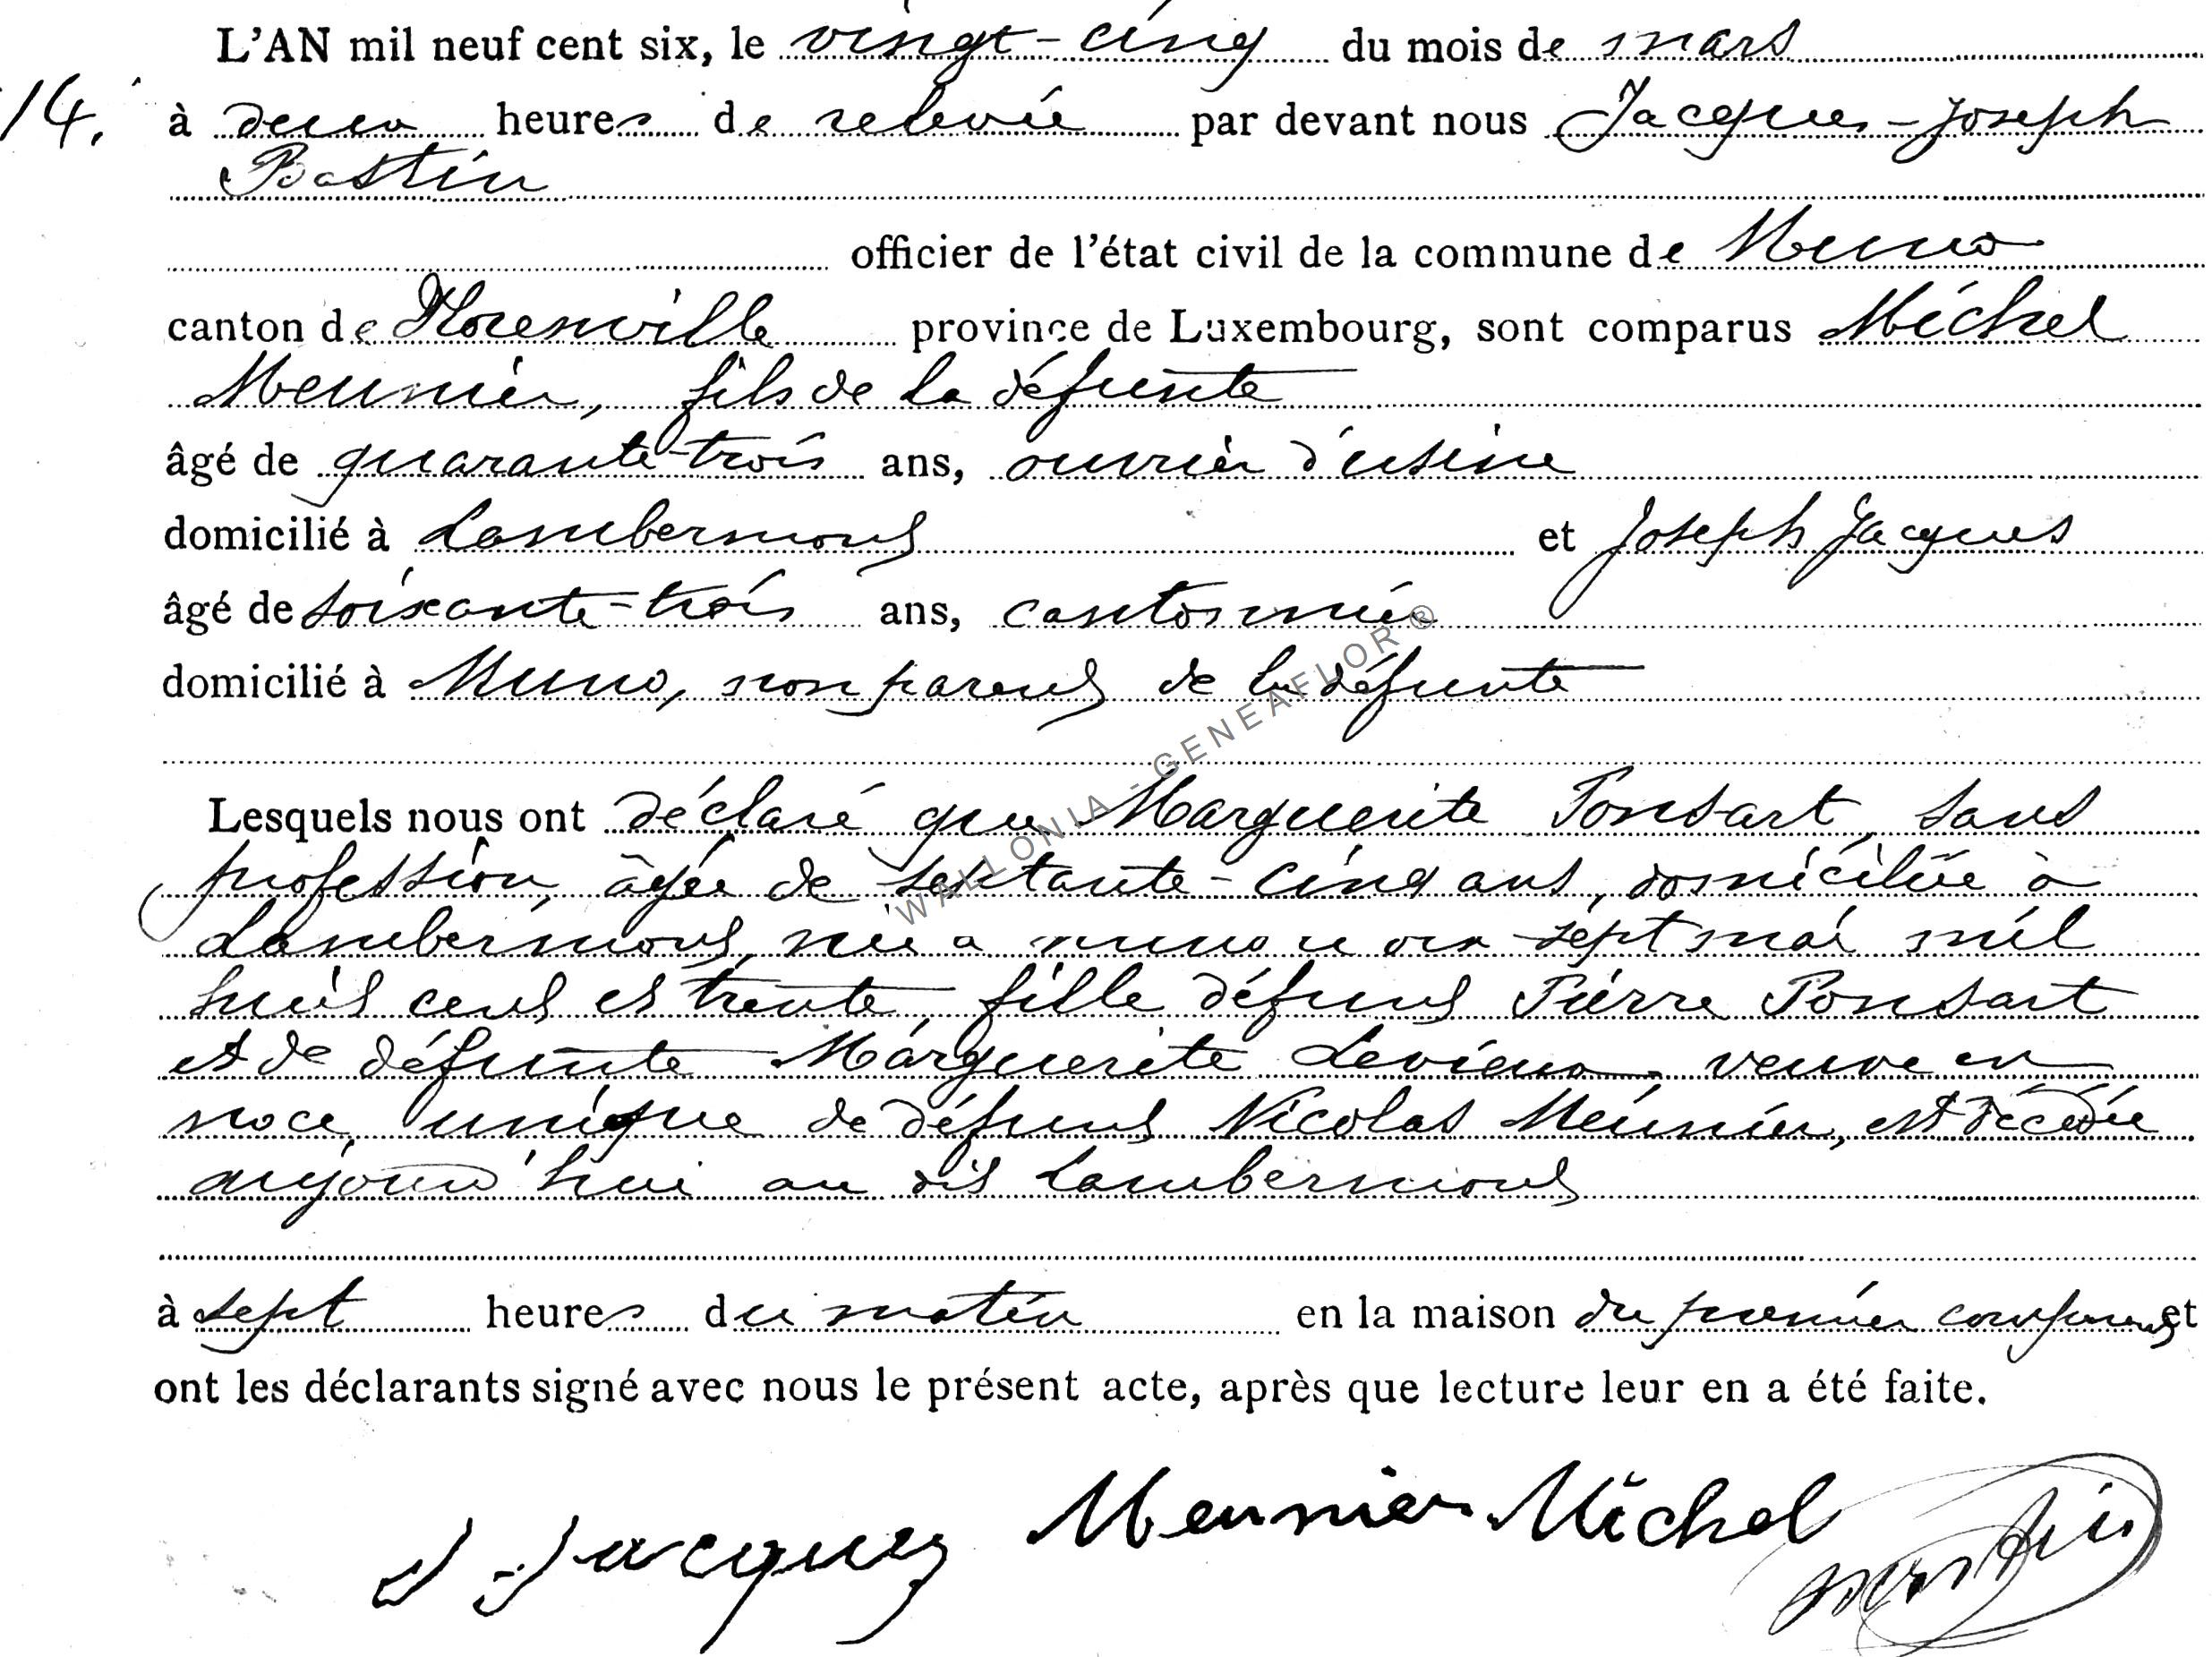 L'AN mil neuf cent six, le vingt-cinq du mois de mars
14. à deux heures de relevée par devant nous Jacques-Joseph
Bastin
officier de l'état civil de la commune de Muno
canton de Florenville province de Luxembourg, sont comparus Michel
Meunier, fils de la défunte
âgé de quarante-trois ans, ouvrier d'usine
domicilié à Lambermont et Joseph Jacques
âgé de soixante-trois ans, cantonnier
domicilié à Muno, non parent de la défunte
WALLONIA - GENEAFLOR ®
Lesquels nous ont déclaré que Marguerite Ponsart, sans
profession, âgée de septante-cinq ans, domiciliée à
Lambermont, née à Muno le dix-sept mai mil
huit cent et trente, fille défunt Pierre Ponsart
et de défunte Marguerite Levieux, veuve en
noce unique de défunt Nicolas Meunier, est décédée
aujourd'hui au dit Lambermont
à sept heures du matin en la maison du premier comparant et
ont les déclarants signé avec nous le présent acte, après que lecture leur en a été faite.
J. Jacques Meunier Michel Bastin